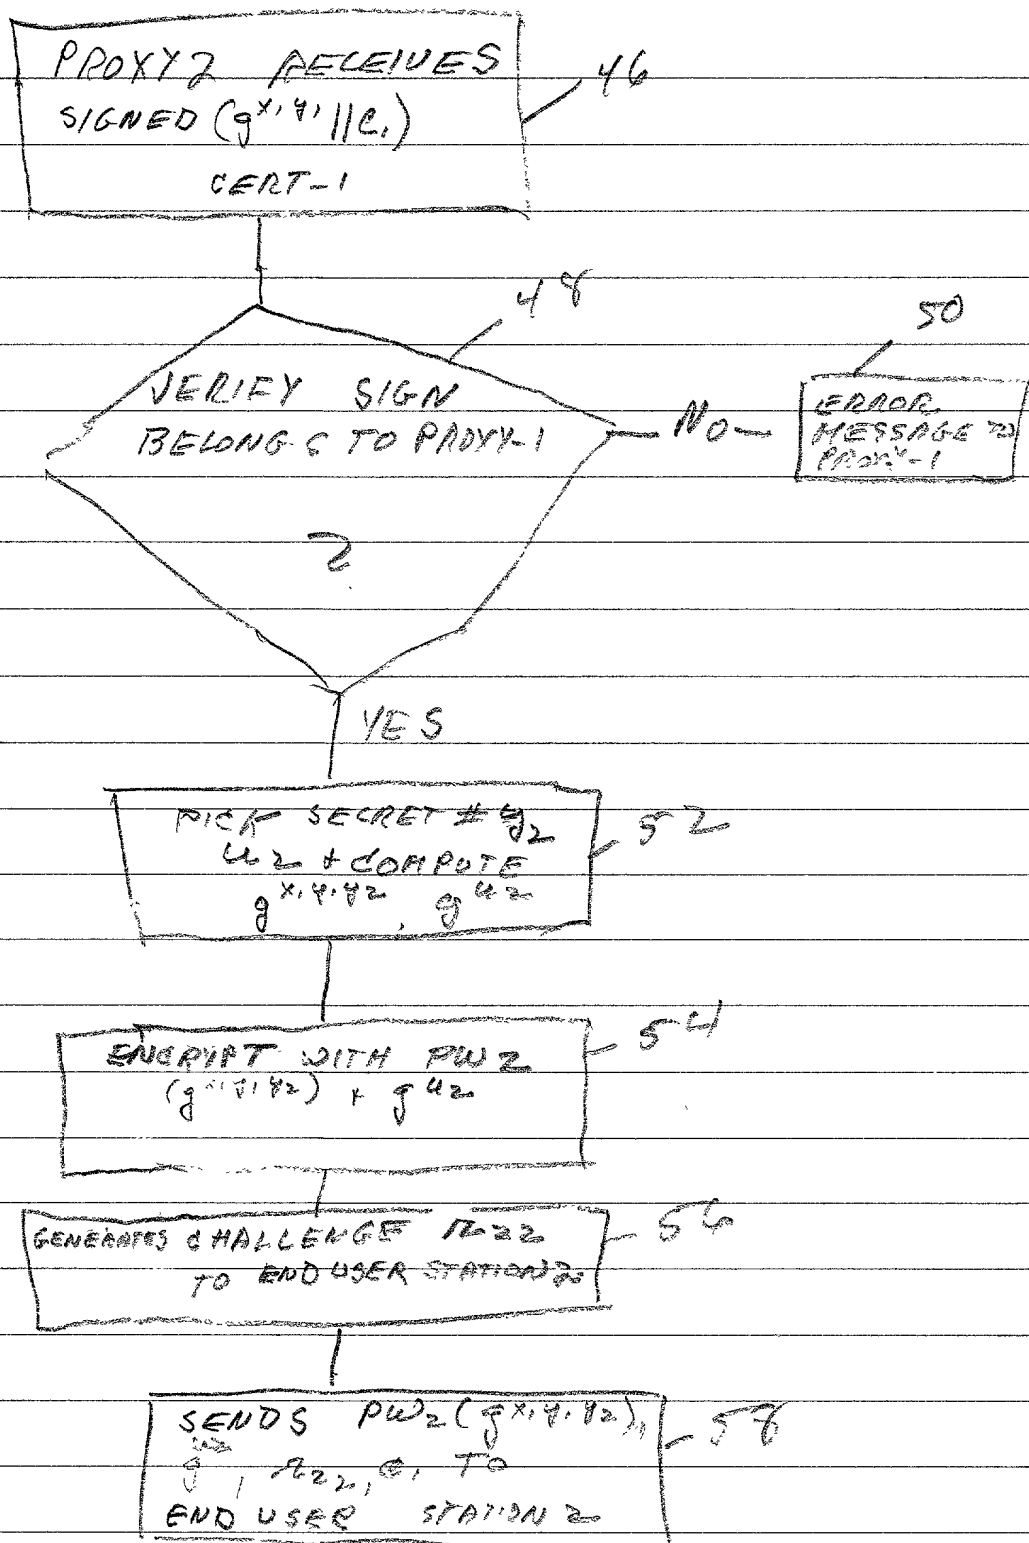 PROXY 2 RECEIVES
SIGNED (g^x₁y₁ || C₁)
CERT-1
46
VERIFY SIGN
BELONGS TO PROXY-1
?
48
NO
50
ERROR
MESSAGE TO
PROXY-1
YES
PICK SECRET # y₂
u₂ + COMPUTE
g^x₁y₁y₂, g^u₂
52
ENCRYPT WITH PW2
(g^x₁y₁y₂) + g^u₂
54
GENERATES CHALLENGE r₂₂
TO END USER STATION 2
56
SENDS PW₂(g^x₁y₁y₂),
g^u₂, r₂₂, C₁ TO
END USER STATION 2
58